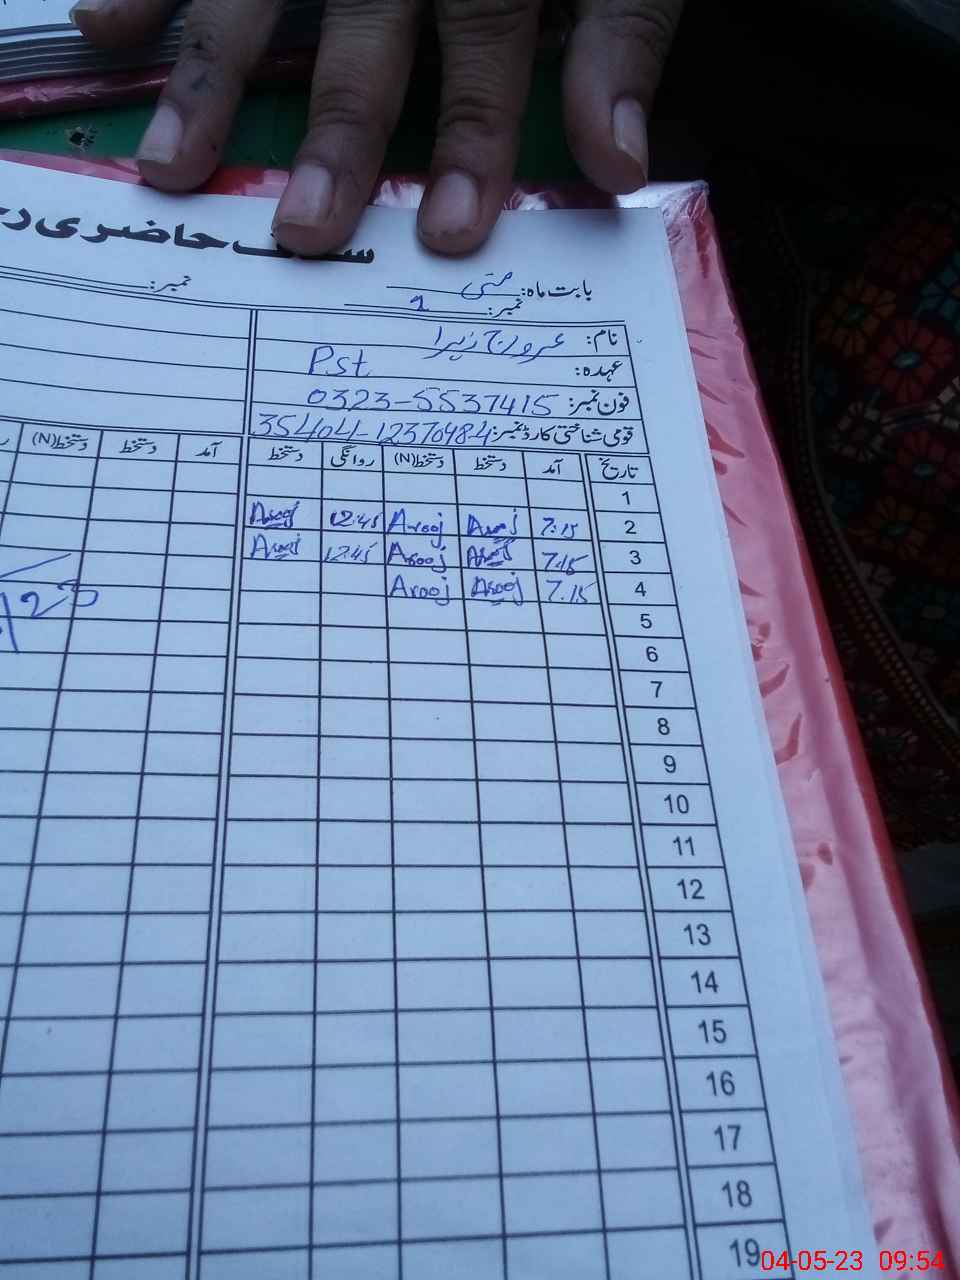 سٹاف حاضری
بابت ماہ: مئی
نمبر: 2 نمبر:
نام: عروج زہرا
عہدہ: Pst
فون نمبر: 0323-5537415
قومی شناختی کارڈ نمبر: 35404-1237098-4
تاریخ آمد دستخط دستخط(N) روانگی دستخط آمد دستخط دستخط(N)
1
2 7:15 Arooj Arooj 12:45 Arooj
3 7:15 Arooj Arooj 12:45 Arooj
4 7.15 Arooj Arooj
5
6
7
8
9
10
11
12
13
14
15
16
17
18
19
04-05-23 09:54